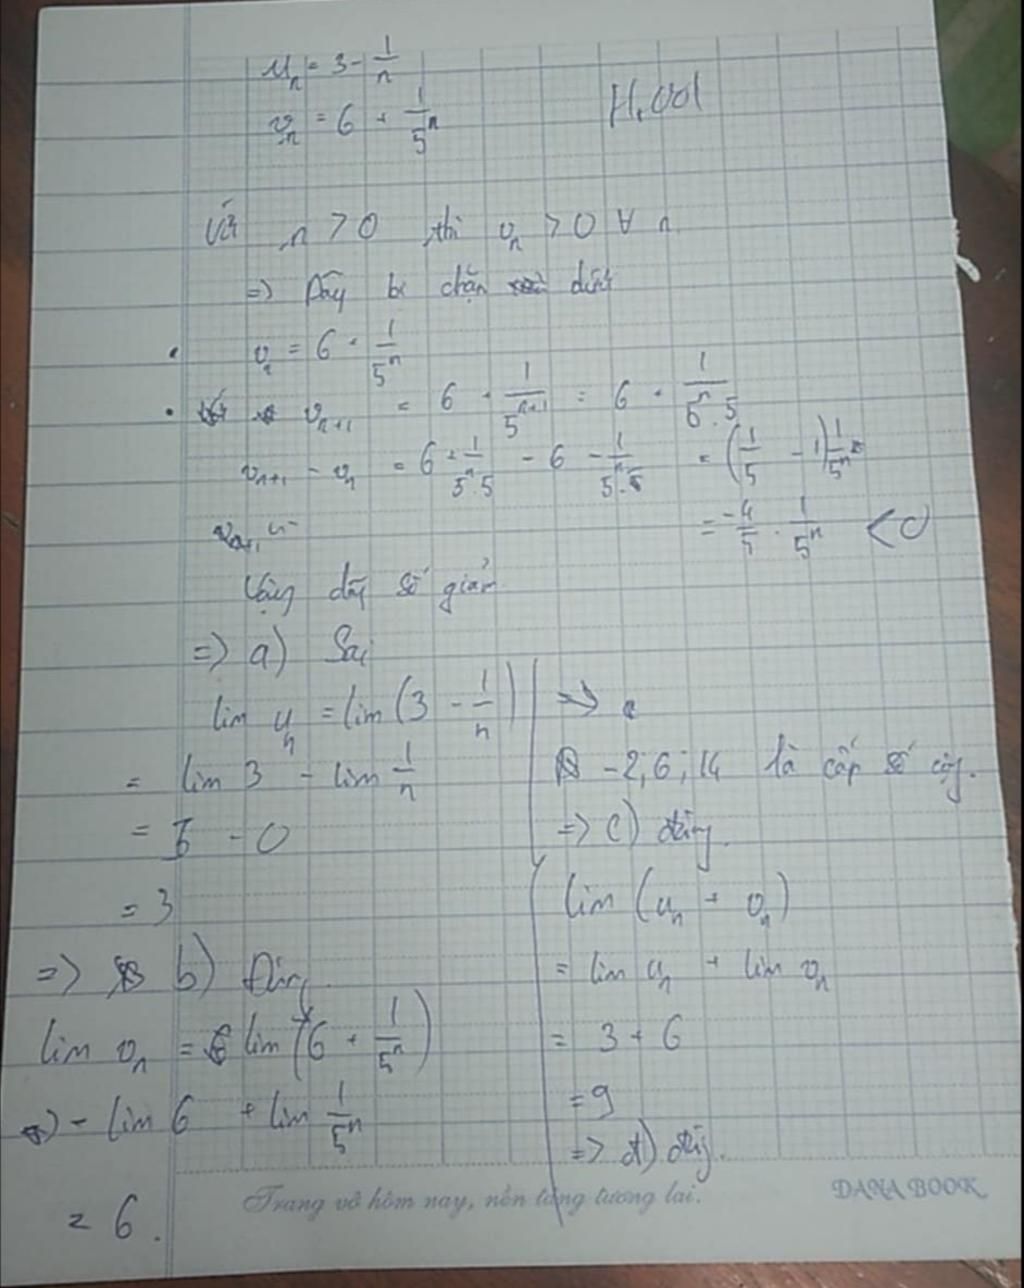 u_n = 3 - 1/n
v_n = 6 + 1/5^n
Với n > 0 thì v_n > 0 ∀ n
=> Dãy bị chặn dưới
v_n = 6 + 1/5^n
v_{n+1} = 6 + 1/5^{n+1} = 6 + 1/(5^n . 5)
v_{n+1} - v_n = 6 + 1/(5^n . 5) - 6 - 1/5^n = (1/5 - 1) 1/5^n
= -4/5 . 1/5^n < 0
Vậy dãy số giảm
=> a) Sai
lim u_n = lim (3 - 1/n)
= lim 3 - lim 1/n
= 3 - 0
= 3
=> b) Đúng
lim v_n = lim (6 + 1/5^n)
= lim 6 + lim 1/5^n
= 6.
=>
-2; 6; 14 là cấp số cộng.
=> c) đúng.
lim (u_n + v_n)
= lim u_n + lim v_n
= 3 + 6
= 9
=> d) đúng.
Trang vở hôm nay, nền tảng tương lai.
DANA BOOK